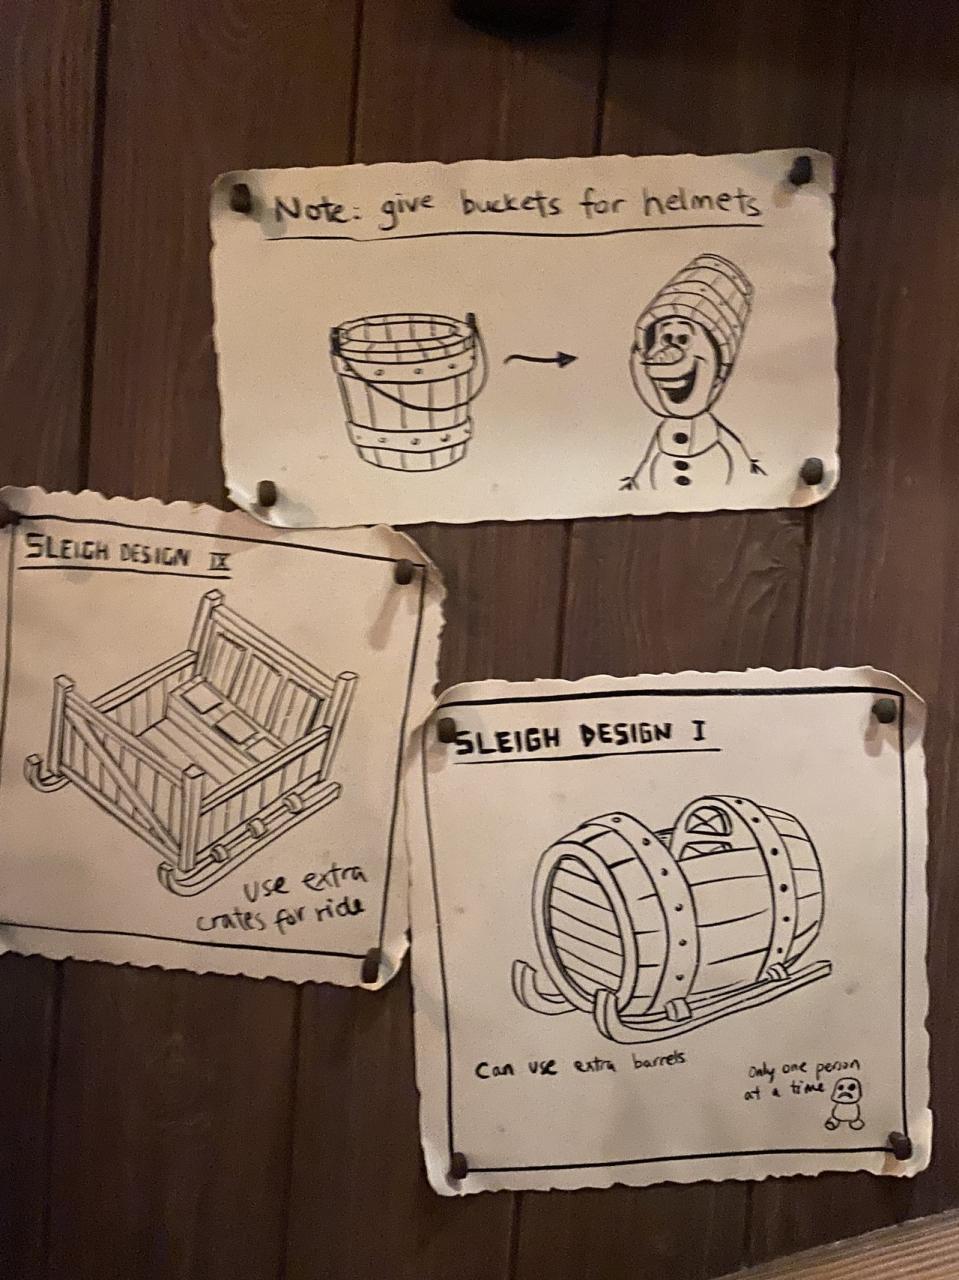 Note: give buckets for helmets
SLEIGH DESIGN IX
use extra
crates for ride
SLEIGH DESIGN I
Can use extra barrels
Only one person
at a time